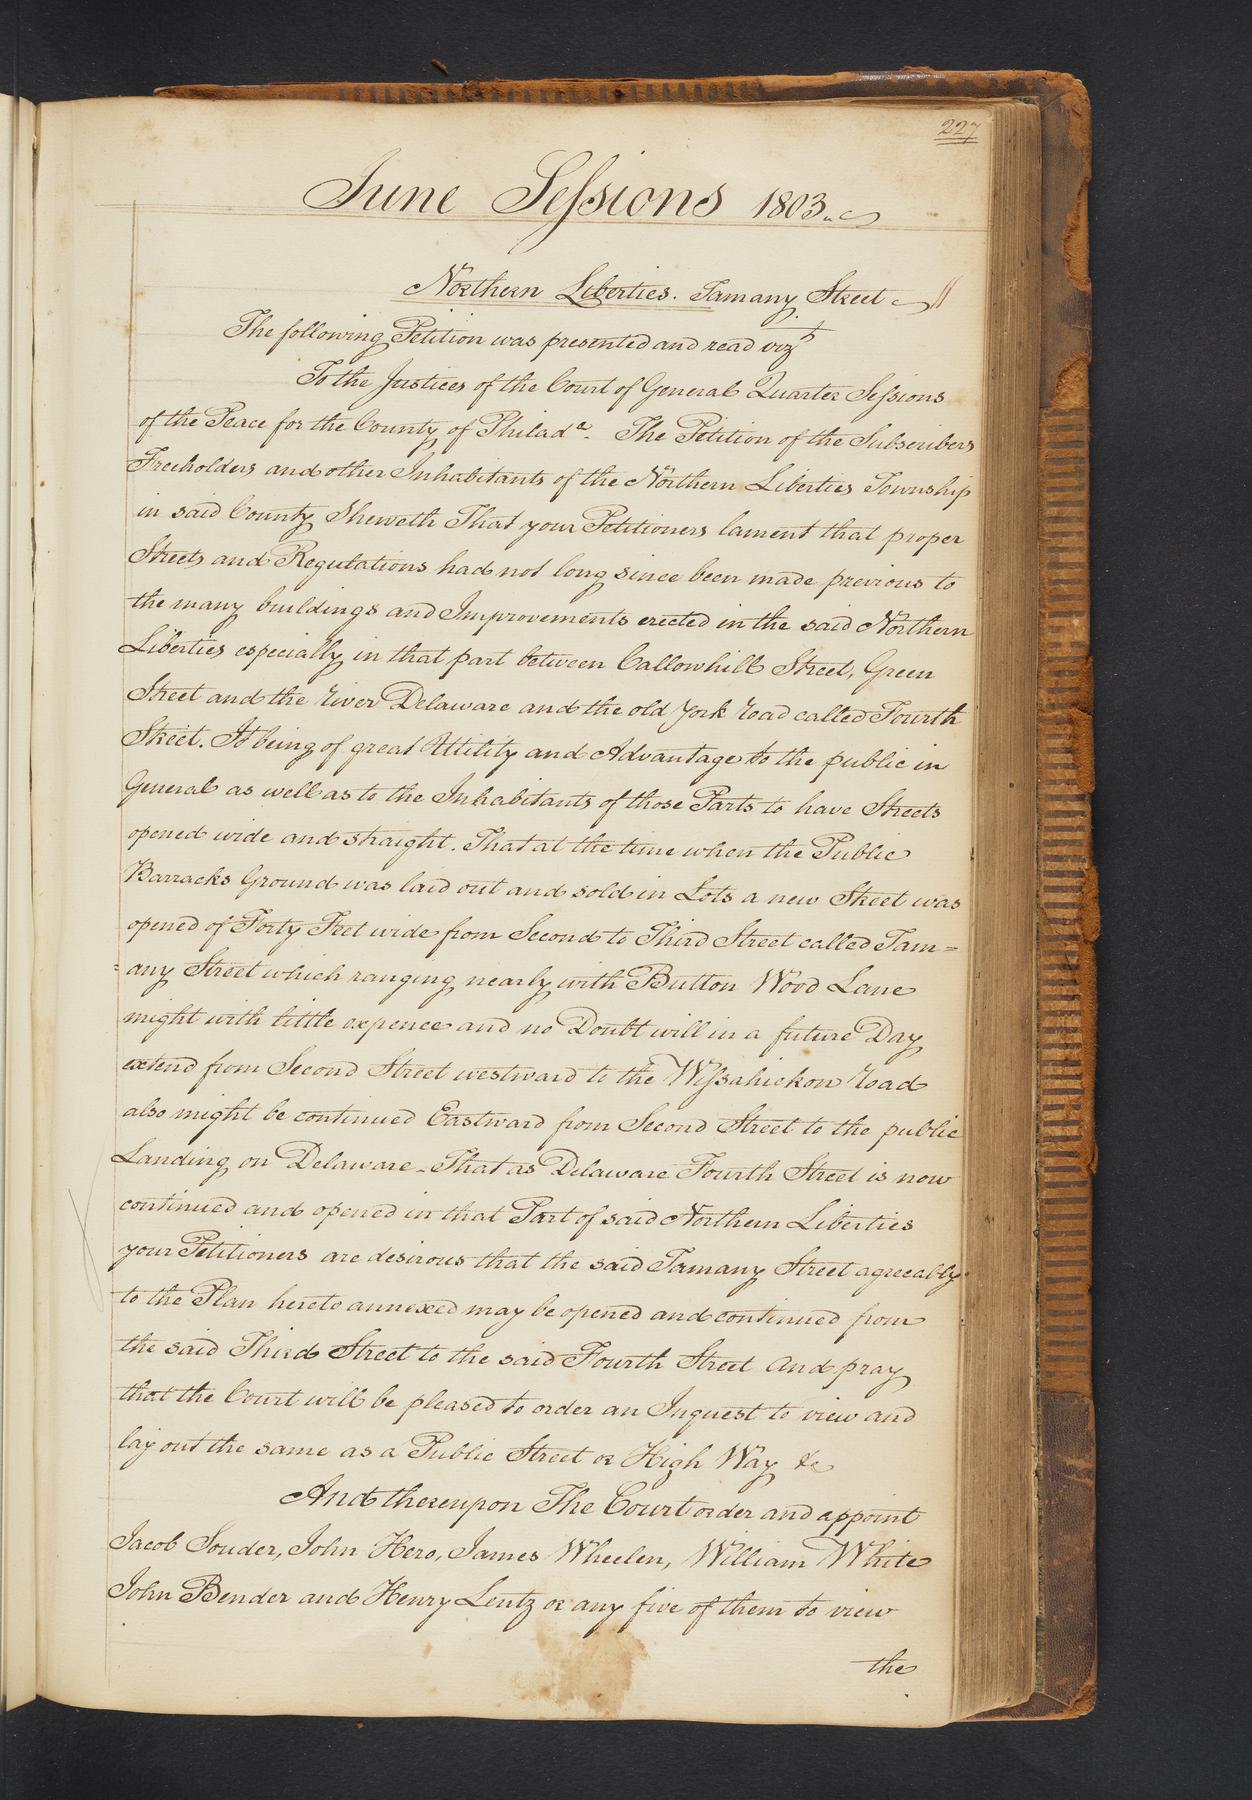 227
June Sessions 1803.
Northern Liberties. Tamany Street
The following Petition was presented and read vizt
To the Justices of the Court of General Quarter Sessions
of the Peace for the County of Philada. The Petition of the Subscribers
Freeholders and other Inhabitants of the Northern Liberties Township
in said County Sheweth That your Petitioners lament that proper
Streets and Regulations had not long since been made previous to
the many buildings and Improvements erected in the said Northern
Liberties especially in that part between Callowhill Street, Green
Street and the River Delaware and the old York Road called Fourth
Street. It being of great Utility and Advantage to the public in
General as well as to the Inhabitants of those Parts to have Streets
opened wide and straight. That at the time when the Public
Barracks Ground was laid out and sold in Lots a new Street was
opened of Forty Feet wide from Second to Third Street called Tam=
=any Street which ranging nearly with Button Wood Lane
might with little expence and no Doubt will in a future Day
extend from Second Street westward to the Wissahickon Road
also might be continued Eastward from Second Street to the public
Landing on Delaware - That as Delaware Fourth Street is now
continued and opened in that Part of said Northern Liberties
your Petitioners are desirous that the said Tamany Street agreeably
to the Plan hereto annexed may be opened and continued from
the said Third Street to the said Fourth Street And pray
that the Court will be pleased to order an Inquest to view and
lay out the same as a Public Street or High Way &c
And thereupon The Court order and appoint
Jacob Souder, John Hero, James Wheelen, William White
John Bender and Henry Lentz or any five of them to view
the